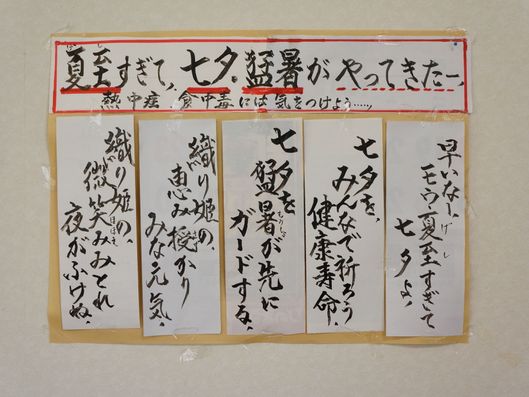 夏至すぎて、七夕、猛暑が やってきたー、
熱中症、食中毒には気をつけよう……、
早いなー、
モウ夏至すぎて
七夕よ、
七夕を、
みんなで祈ろう
健康寿命、
七夕を
猛暑が先に
ガードする、
織り姫の、
恵み授かり
みな元気、
織り姫の、
微笑みみとれ
夜がふけぬ、